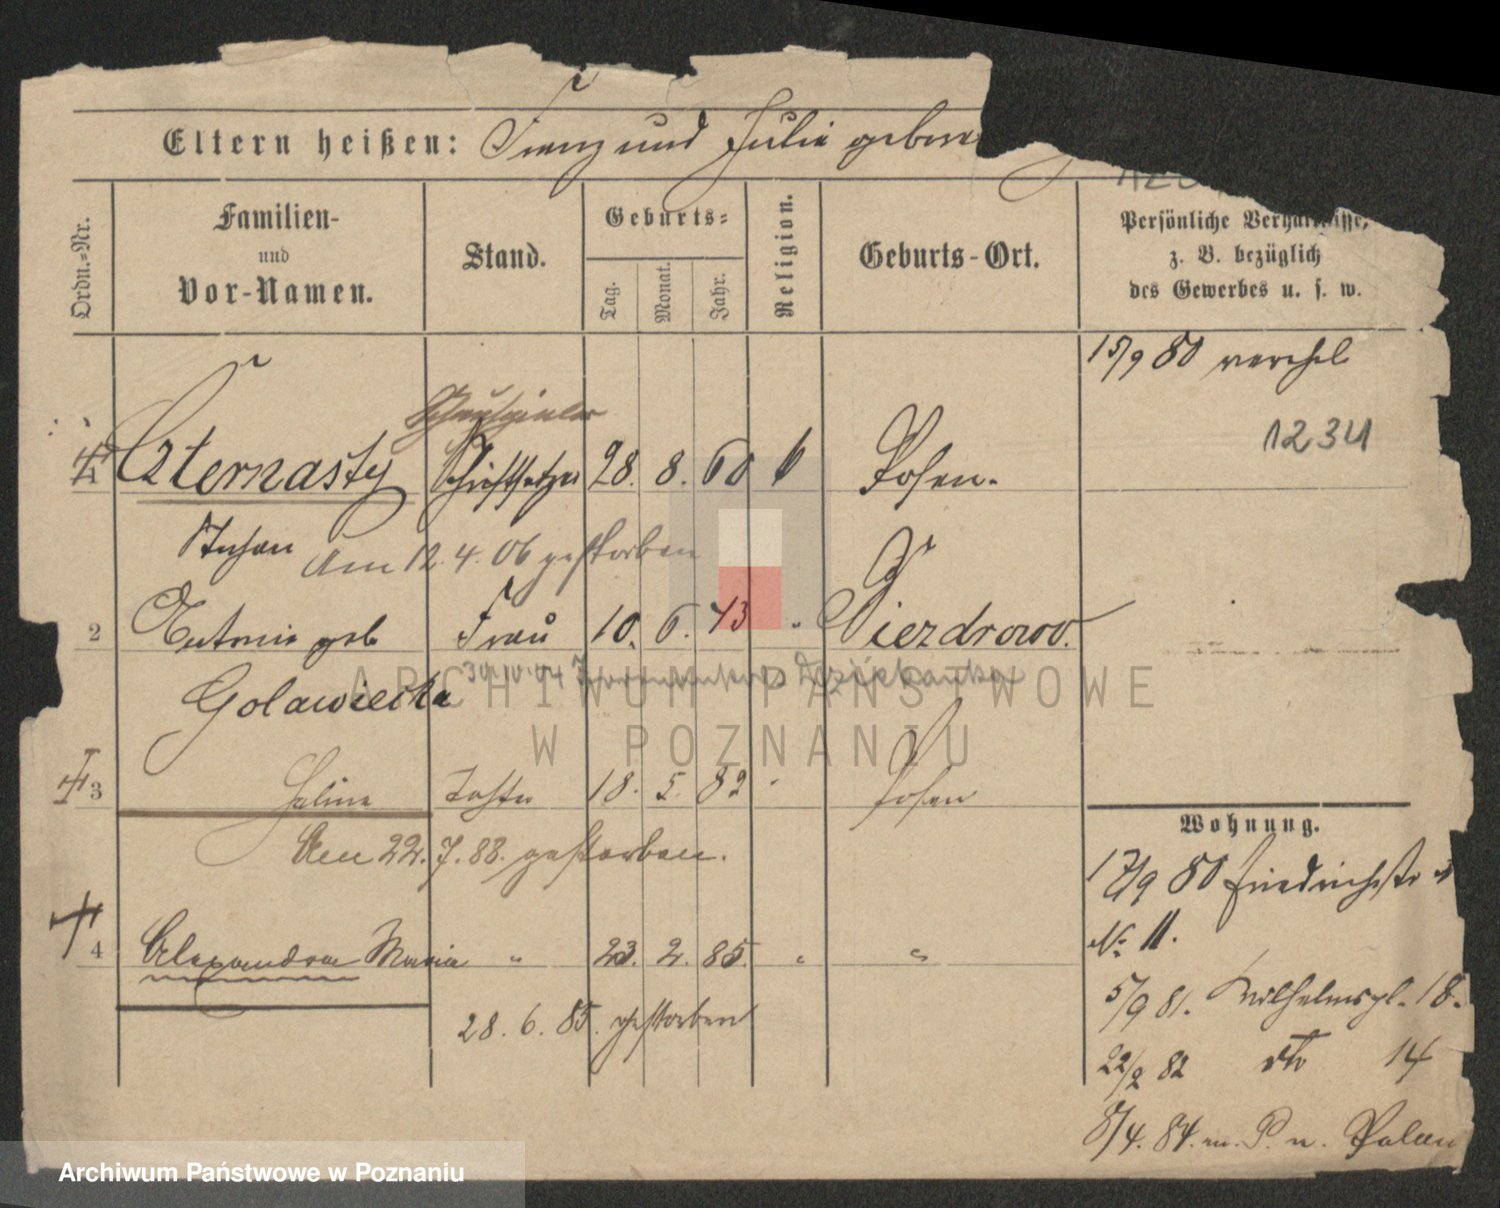 Eltern heißen: Franz und Julie geborene
Ordn.=Nr.
Familien-
und
Vor-Namen.
Stand.
Geburts=
Tag.
Monat.
Jahr.
Religion.
Geburts-Ort.
Persönliche Verhältnisse,
z. B. bezüglich
des Gewerbes u. s. w.
15/9 80 verehel
1234
Schauspieler
1 Czternasty Schriftsetzer 28. 8. 60 k Posen.
Stephan am 12. 4. 06 gestorben
2 Antonie geb Frau 10. 6. " Piezdrowo.
Golawiecka
3 Halina Tochter 18. 5. 82 " Posen
Am 22. 7. 88. gestorben.
4 Alexandra Maria " 23. 2. 85. " "
28. 6. 85. gestorben
Wohnung.
17/9 80 Friedrichstr
No 11.
5/9 81. Wilhelmspl. 18.
22/2 82 dto 14
8/4. 84. m. P. n. Polen
ARCHIWUM PAŃSTWOWE
W POZNANIU
Archiwum Państwowe w Poznaniu